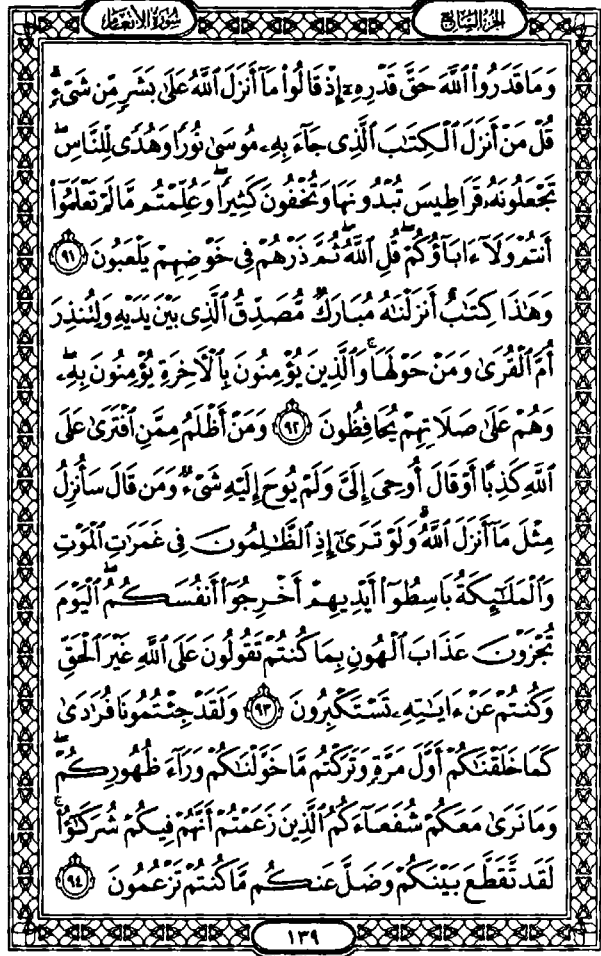 سُورَةُ الأَنعَامِ
الجُزْءُ السَّابِعُ
وَمَا قَدَرُوا۟ ٱللَّهَ حَقَّ قَدْرِهِۦٓ إِذْ قَالُوا۟ مَآ أَنزَلَ ٱللَّهُ عَلَىٰ بَشَرٍ مِّن شَىْءٍ ۗ
قُلْ مَنْ أَنزَلَ ٱلْكِتَـٰبَ ٱلَّذِى جَآءَ بِهِۦ مُوسَىٰ نُورًا وَهُدًى لِّلنَّاسِ ۖ
تَجْعَلُونَهُۥ قَرَاطِيسَ تُبْدُونَهَا وَتُخْفُونَ كَثِيرًا ۖ وَعُلِّمْتُم مَّا لَمْ تَعْلَمُوٓا۟
أَنتُمْ وَلَآ ءَابَآؤُكُمْ ۖ قُلِ ٱللَّهُ ۖ ثُمَّ ذَرْهُمْ فِى خَوْضِهِمْ يَلْعَبُونَ ٩١
وَهَـٰذَا كِتَـٰبٌ أَنزَلْنَـٰهُ مُبَارَكٌ مُّصَدِّقُ ٱلَّذِى بَيْنَ يَدَيْهِ وَلِتُنذِرَ
أُمَّ ٱلْقُرَىٰ وَمَنْ حَوْلَهَا ۚ وَٱلَّذِينَ يُؤْمِنُونَ بِٱلْـَٔاخِرَةِ يُؤْمِنُونَ بِهِۦ ۖ
وَهُمْ عَلَىٰ صَلَاتِهِمْ يُحَافِظُونَ ٩٢ وَمَنْ أَظْلَمُ مِمَّنِ ٱفْتَرَىٰ عَلَى
ٱللَّهِ كَذِبًا أَوْ قَالَ أُوحِىَ إِلَىَّ وَلَمْ يُوحَ إِلَيْهِ شَىْءٌ وَمَن قَالَ سَأُنزِلُ
مِثْلَ مَآ أَنزَلَ ٱللَّهُ ۗ وَلَوْ تَرَىٰٓ إِذِ ٱلظَّـٰلِمُونَ فِى غَمَرَٰتِ ٱلْمَوْتِ
وَٱلْمَلَـٰٓئِكَةُ بَاسِطُوٓا۟ أَيْدِيهِمْ أَخْرِجُوٓا۟ أَنفُسَكُمُ ۖ ٱلْيَوْمَ
تُجْزَوْنَ عَذَابَ ٱلْهُونِ بِمَا كُنتُمْ تَقُولُونَ عَلَى ٱللَّهِ غَيْرَ ٱلْحَقِّ
وَكُنتُمْ عَنْ ءَايَـٰتِهِۦ تَسْتَكْبِرُونَ ٩٣ وَلَقَدْ جِئْتُمُونَا فُرَٰدَىٰ
كَمَا خَلَقْنَـٰكُمْ أَوَّلَ مَرَّةٍ وَتَرَكْتُم مَّا خَوَّلْنَـٰكُمْ وَرَآءَ ظُهُورِكُمْ ۖ
وَمَا نَرَىٰ مَعَكُمْ شُفَعَآءَكُمُ ٱلَّذِينَ زَعَمْتُمْ أَنَّهُمْ فِيكُمْ شُرَكَـٰٓؤُا۟ ۚ
لَقَد تَّقَطَّعَ بَيْنَكُمْ وَضَلَّ عَنكُم مَّا كُنتُمْ تَزْعُمُونَ ٩٤
١٣٩